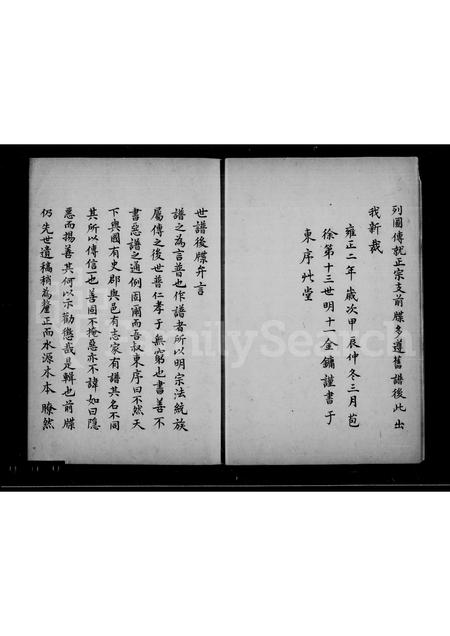 列圖傳就正宗支前牒多遵舊譜後此出
我新裁
雍正二年歲次甲辰仲冬三月苞
徐第十三世明十一金鏞謹書于
東序艸堂
世譜後牒弁言
譜之為言普也作譜者所以明宗法統族
屬傳之後世普仁孝于無窮也書善不
書惡譜之通例固爾而吾叔東序曰不然天
下與國有史郡與邑有志家有譜其名不同
其所以傳信一也善固不掩惡亦不諱如曰隱
惡而揚善其何以示勸懲哉是輯也前牒
仍先世遺稿稍為釐正而水源木本瞭然
FamilySearch